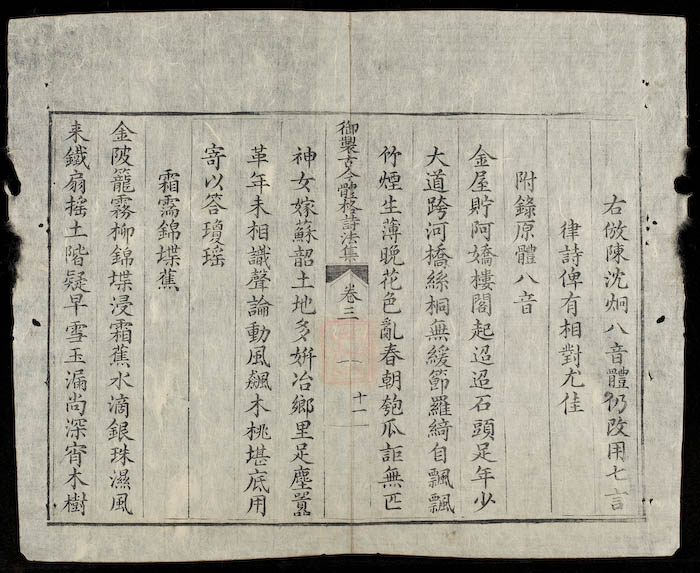 右倣陳沈炯八音體仍改用七言
律詩俾有相對尤佳
附錄原體八音
金屋貯阿嬌樓閣起迢迢石頭足年少
大道跨河橋絲桐無緩節羅綺自飄飄
竹煙生薄晚花色亂春朝匏瓜詎無匹
御製古今體格詩法集 卷三 十一
神女嫁蘇韶土地多姸冶鄉里足塵囂
革年未相識聲論動風飆木桃堪底用
寄以答瓊瑤
霜濡錦堞蕉
金陂籠霧柳錦堞浸霜蕉水滴銀珠濕風
来鐵扇摇土階疑早雪玉漏尚深宵木樹